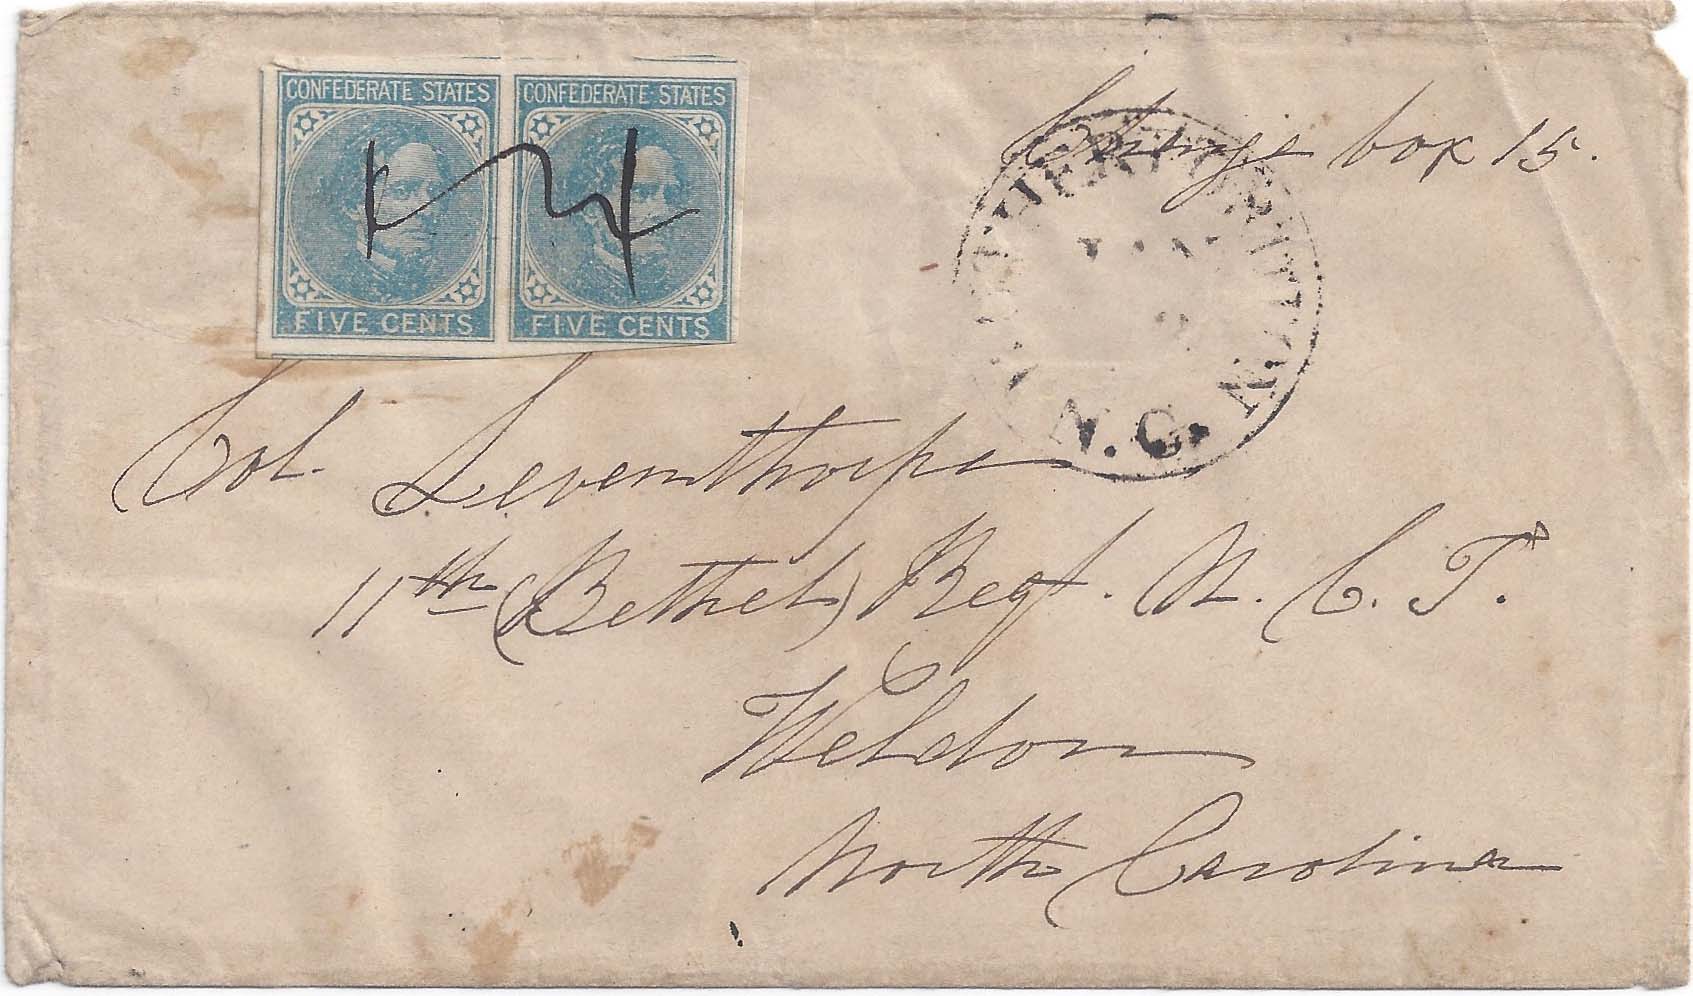 CONFEDERATE STATES CONFEDERATE STATES
FIVE CENTS FIVE CENTS
Charge box 15.
RUTHERFORDTON
JAN
N.C.
Col. Leventhorpe
11th (Bethel) Regt. N. C. T.
Weldon
North Carolina